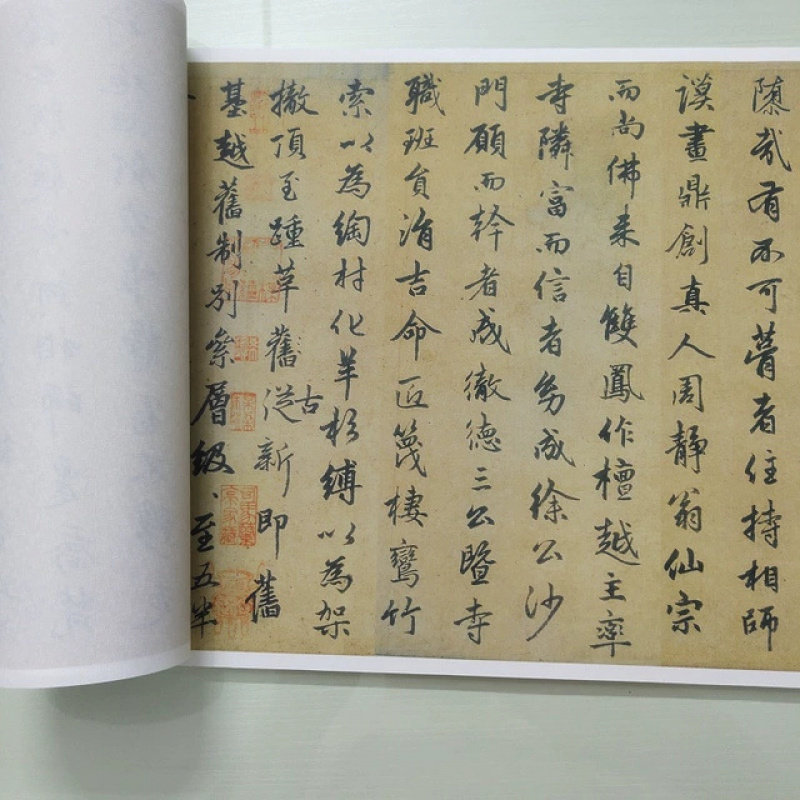 隳哉有不可瞢者住持相師
謨畫鼎創真人周靜翁仙宗
而尚佛来自雙鳳作檀越主率
寺隣富而信者為成徐公沙
門願而幹者成徹德三公暨寺
職班負涓吉命匠篾棲鸞竹
索以為綯村化羊杉縛以為架
撤頂至踵草舊從新即舊
古
基越舊制別条層級至五半